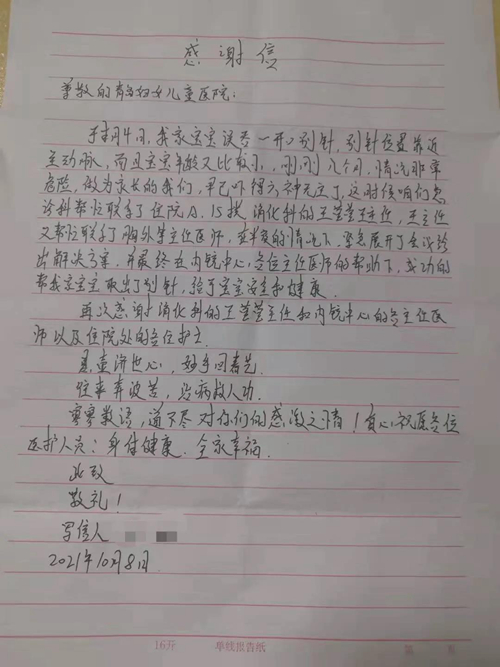 感谢信
尊敬的青岛妇女儿童医院:
于本月4日,我家宝宝误吞一开口别针,别针位置靠近
主动脉,而且宝宝年龄又比较小,刚刚几个月,情况非常
危险,做为家长的我们,早已吓得六神无主了,这时候咱们急
诊科帮忙联系了住院及15楼消化科的王莹莹主任,王主任
又帮忙联系了胸外等主任医师,在的情况下,紧急展开了会议给
出解决方案,并最终在内镜中心各位主任医师的帮助下,成功的
帮我家宝宝取出了别针,给了宝宝安全和健康.
再次感谢消化科的王莹莹主任和内镜中心的各主任医
师以及住院处的各位护士.
悬壶济世心,妙手回春先.
往来奔波苦,治病救人功.
寥寥数语,道不尽对你们的感激之情!衷心祝愿各位
医护人员:身体健康.全家幸福.
此致
敬礼!
写信人
2021年10月8日.
16开 单线报告纸 第 页